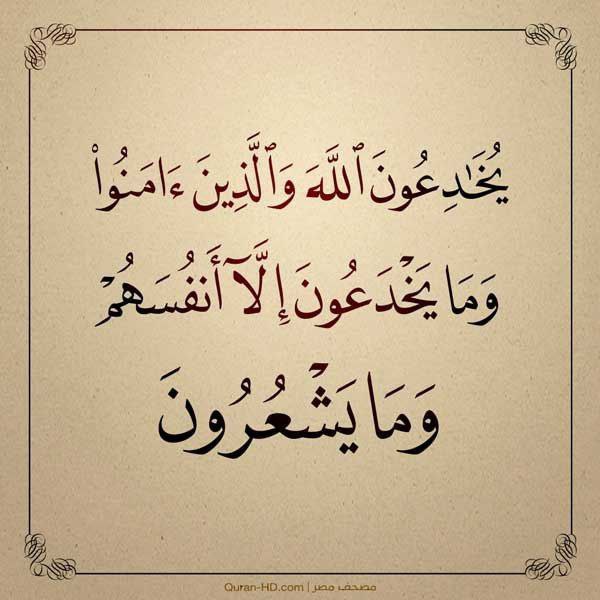 يُخَٰدِعُونَ ٱللَّهَ وَٱلَّذِينَ ءَامَنُوا۟
وَمَا يَخْدَعُونَ إِلَّآ أَنفُسَهُمْ
وَمَا يَشْعُرُونَ
Quran-HD.com | مصحف مصر